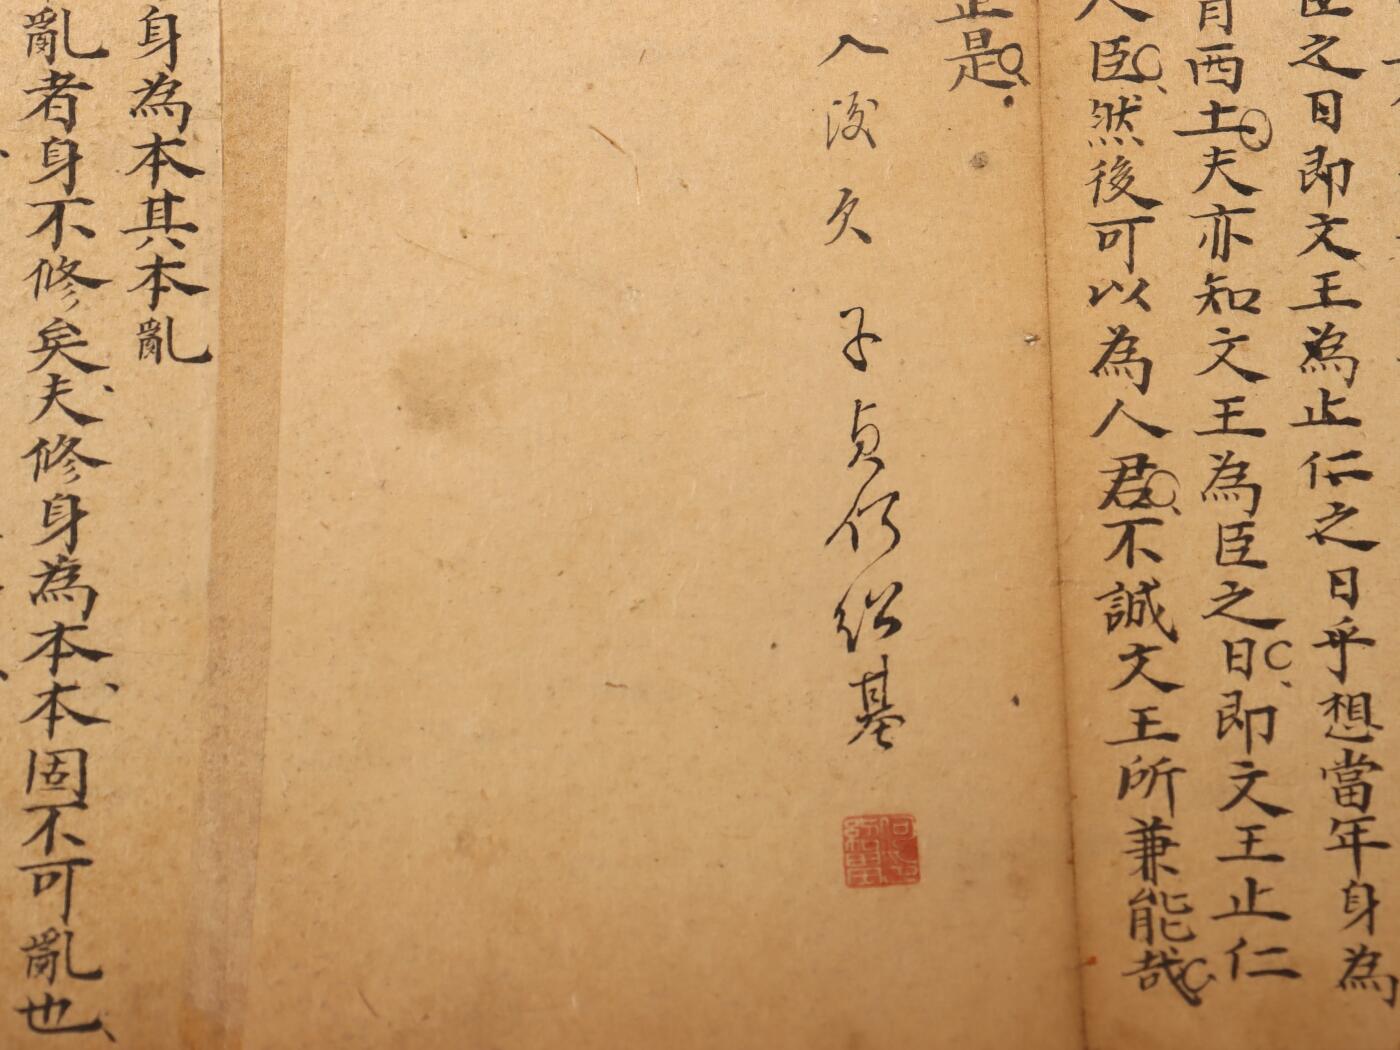 臣之日即文王為止仁之日乎想當年身為
西土夫亦知文王為臣之日即文王止仁
人臣然後可以為人君不誠文王所兼能哉
是
後 子貞何紹基
身為本其本亂
亂者身不修矣夫修身為本本固不可亂也